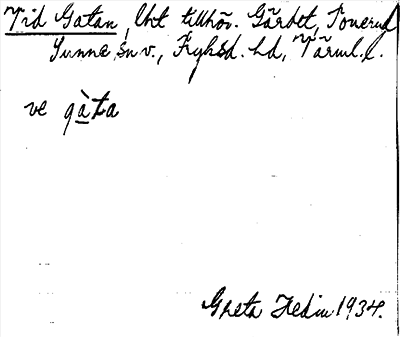 Vid Gatan, lht tillhör. Gärdet, Ponerud
Sunne sn v., Fryksd. hd, Värml. l.
ve gàta
Greta Hedin 1934.